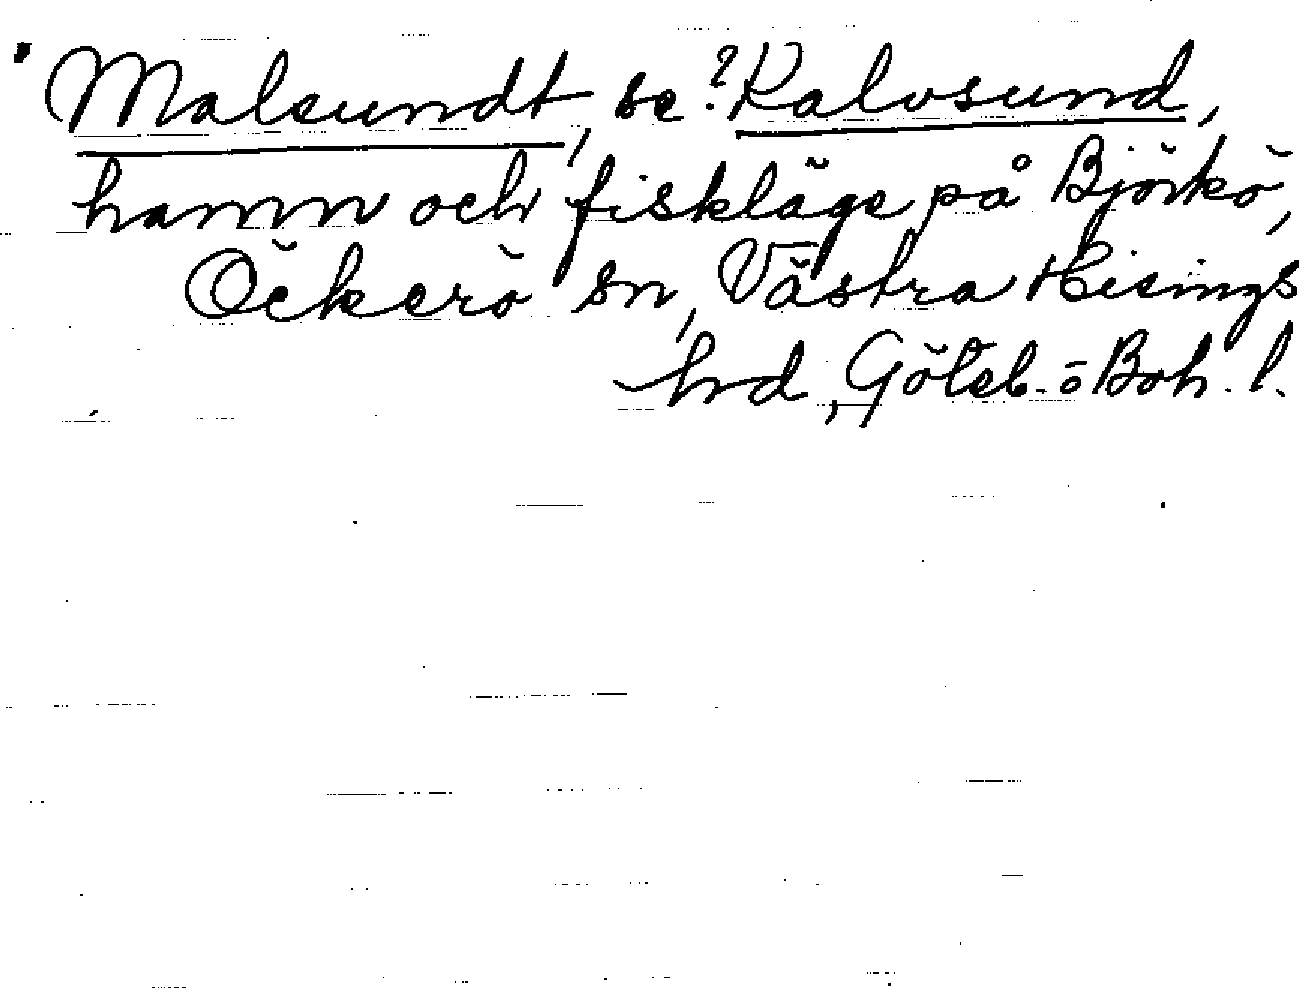 Malsundt, se ? Kalvsund,
hamn och fiskläge på Björkö,
Öckerö sn, Västra Hisings
hd, Göteb. o Boh. l.